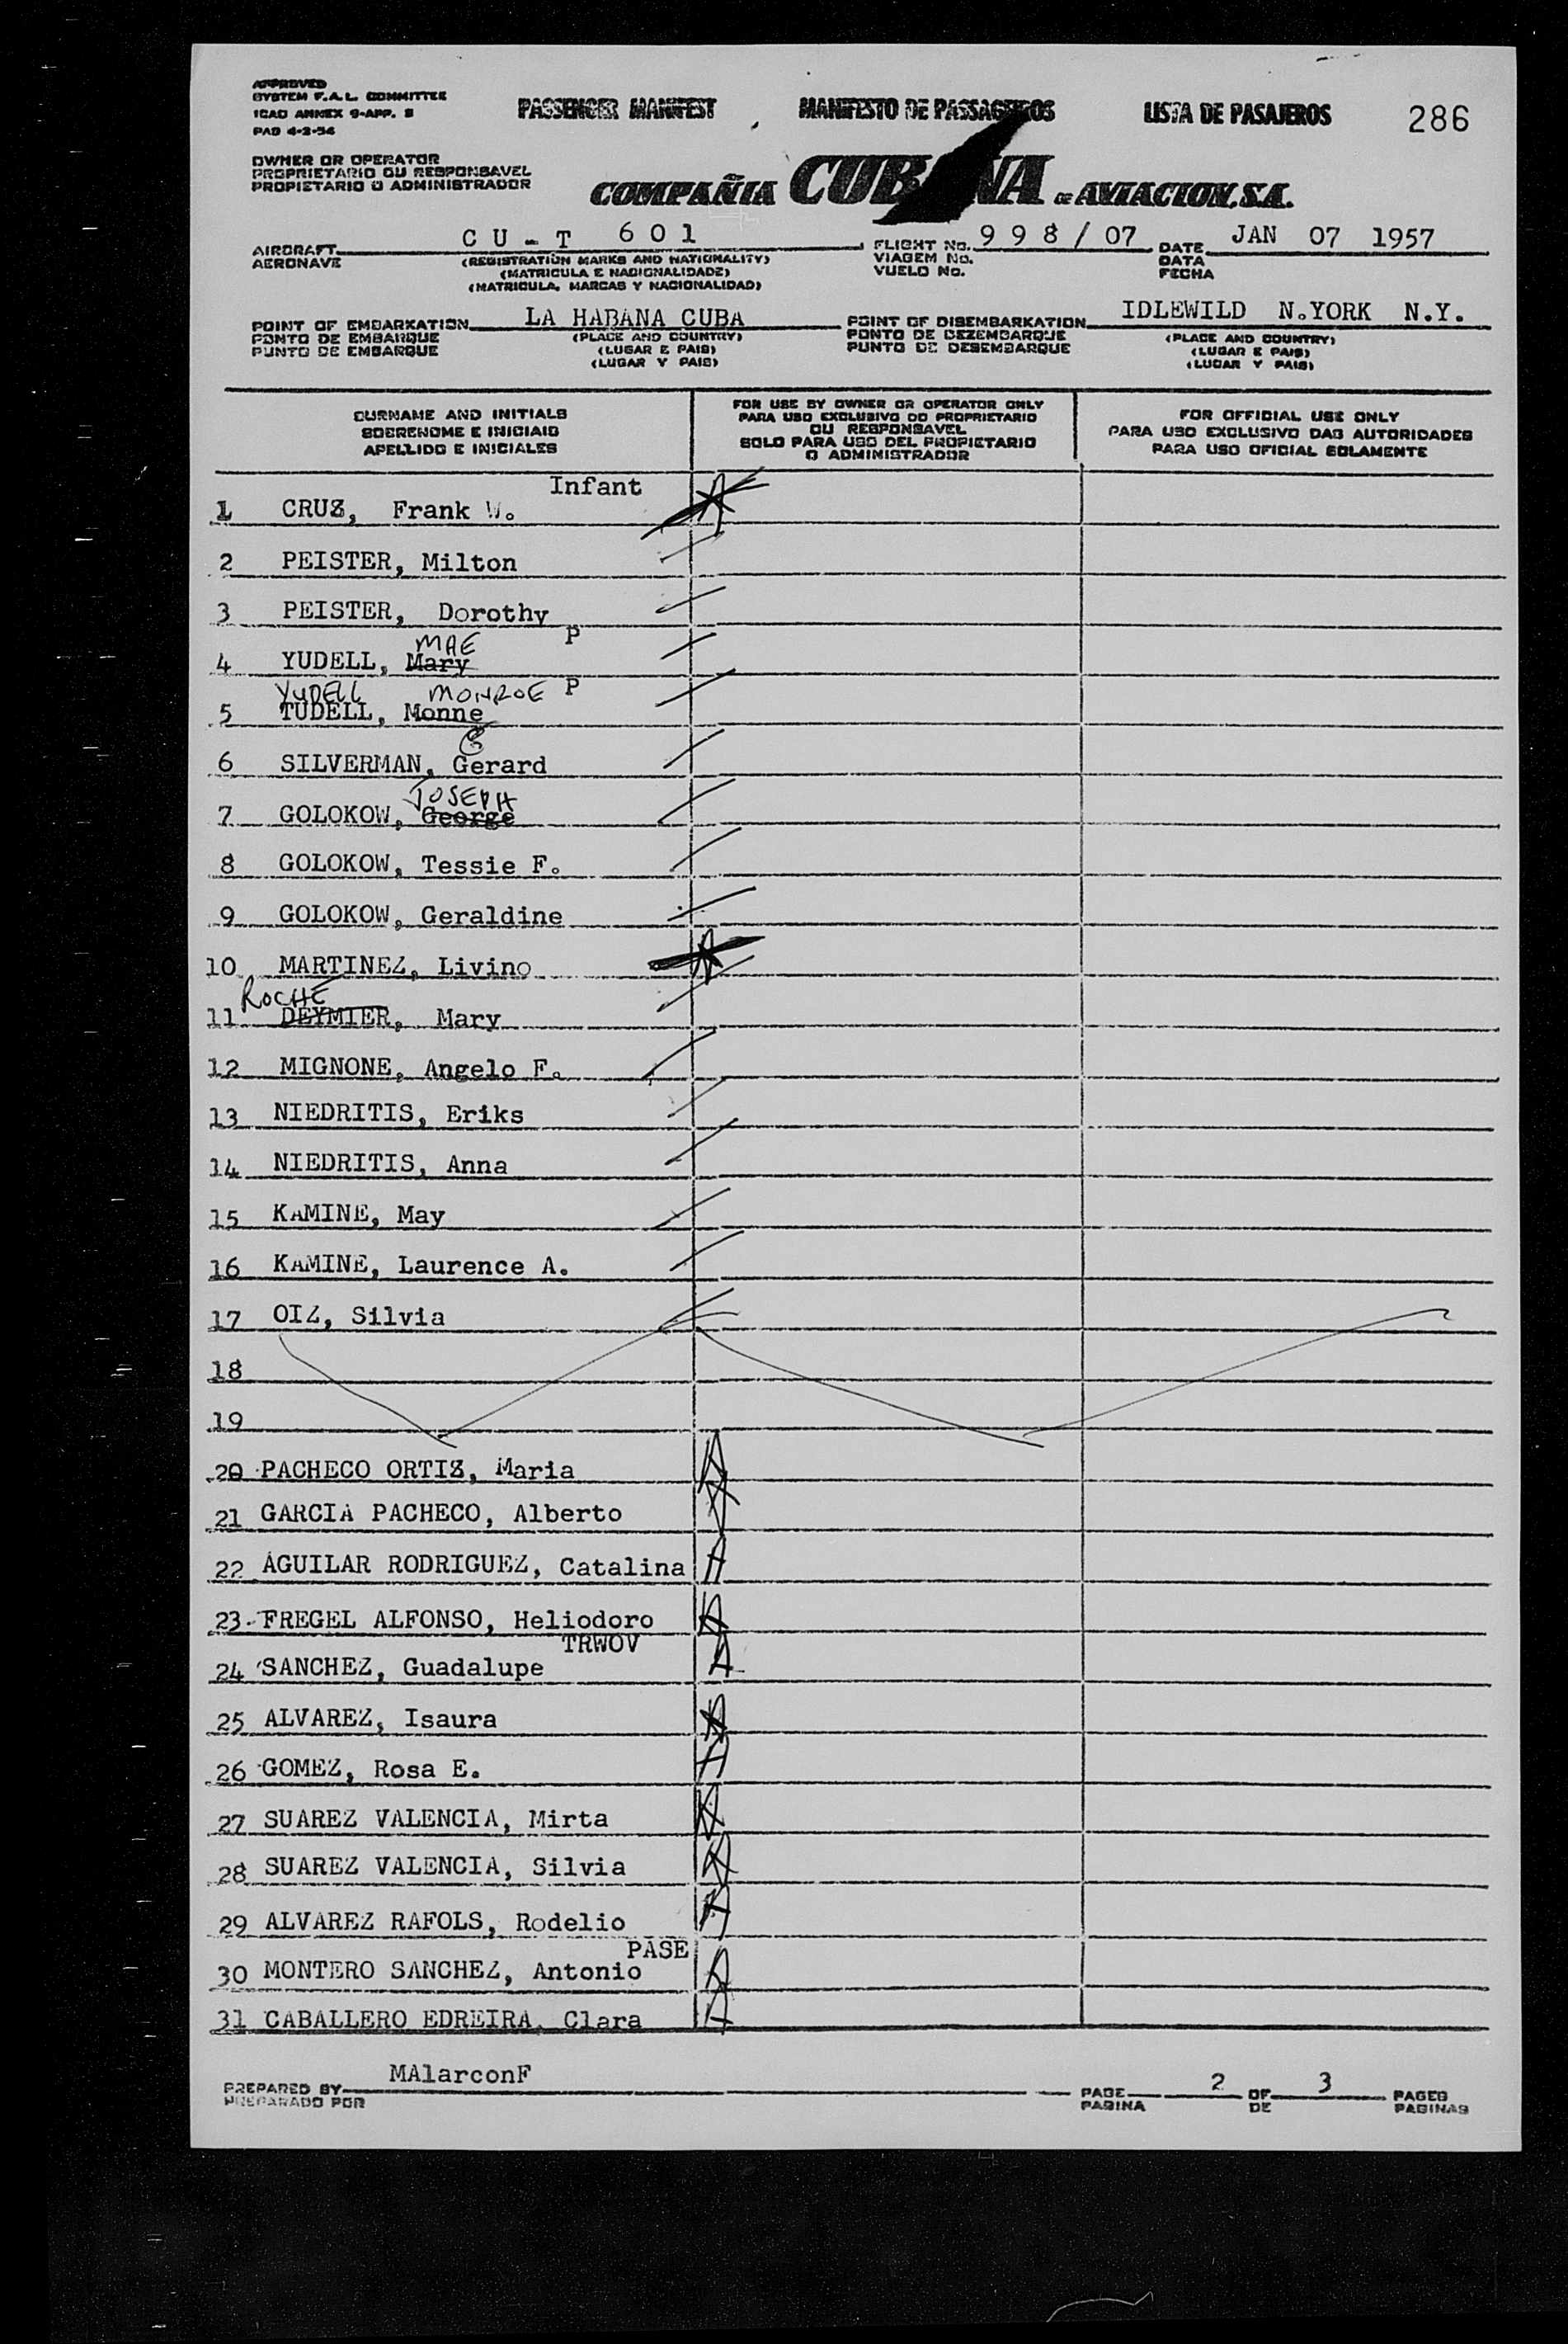 APPROVED
SYSTEM F.A.L. COMMITTEE
ICAO ANNEX 9-APP. 3
PAD 4-2-54
PASSENGER MANIFEST MANIFESTO DE PASSAGEIROS LISTA DE PASAJEROS 286
OWNER OR OPERATOR
PROPRIETARIO OU RESPONSAVEL
PROPIETARIO O ADMINISTRADOR
COMPAÑIA CUBANA DE AVIACION, S.A.
AIRCRAFT CU-T 601 FLIGHT No. 998/07 DATE JAN 07 1957
AERONAVE (REGISTRATION MARKS AND NATIONALITY) VIAGEM No. DATA
(MATRICULA E NACIONALIDADE) VUELO No. FECHA
(MATRICULA, MARCAS Y NACIONALIDAD)
POINT OF EMBARKATION LA HABANA CUBA POINT OF DISEMBARKATION IDLEWILD N.YORK N.Y.
PONTO DE EMBARQUE (PLACE AND COUNTRY) PONTO DE DEZEMBARQUE (PLACE AND COUNTRY)
PUNTO DE EMBARQUE (LUGAR E PAIS) PUNTO DE DESEMBARQUE (LUGAR E PAIS)
(LUGAR Y PAIS) (LUGAR Y PAIS)
SURNAME AND INITIALS
SOBRENOME E INICIAIS
APELLIDO E INICIALES
FOR USE BY OWNER OR OPERATOR ONLY
PARA USO EXCLUSIVO DO PROPRIETARIO
OU RESPONSAVEL
SOLO PARA USO DEL PROPIETARIO
O ADMINISTRADOR
FOR OFFICIAL USE ONLY
PARA USO EXCLUSIVO DAS AUTORIDADES
PARA USO OFICIAL SOLAMENTE
Infant
1 CRUZ, Frank W.
2 PEISTER, Milton
3 PEISTER, Dorothy
MAE P
4 YUDELL, Mary
YUDELL MONROE P
5 TUDELL, Monne
G
6 SILVERMAN, Gerard
JOSEPH
7 GOLOKOW, George
8 GOLOKOW, Tessie F.
9 GOLOKOW, Geraldine
10 MARTINEZ, Livino
ROCHE
11 DEYMIER, Mary
12 MIGNONE, Angelo F.
13 NIEDRITIS, Eriks
14 NIEDRITIS, Anna
15 KAMINE, May
16 KAMINE, Laurence A.
17 OIZ, Silvia
18
19
20 PACHECO ORTIZ, Maria
21 GARCIA PACHECO, Alberto
22 AGUILAR RODRIGUEZ, Catalina
23 FREGEL ALFONSO, Heliodoro
TRWOV
24 SANCHEZ, Guadalupe
25 ALVAREZ, Isaura
26 GOMEZ, Rosa E.
27 SUAREZ VALENCIA, Mirta
28 SUAREZ VALENCIA, Silvia
29 ALVAREZ RAFOLS, Rodelio
PASE
30 MONTERO SANCHEZ, Antonio
31 CABALLERO EDREIRA, Clara
PREPARED BY MAlarconF PAGE 2 OF 3 PAGES
PREPARADO POR PAGINA DE PAGINAS